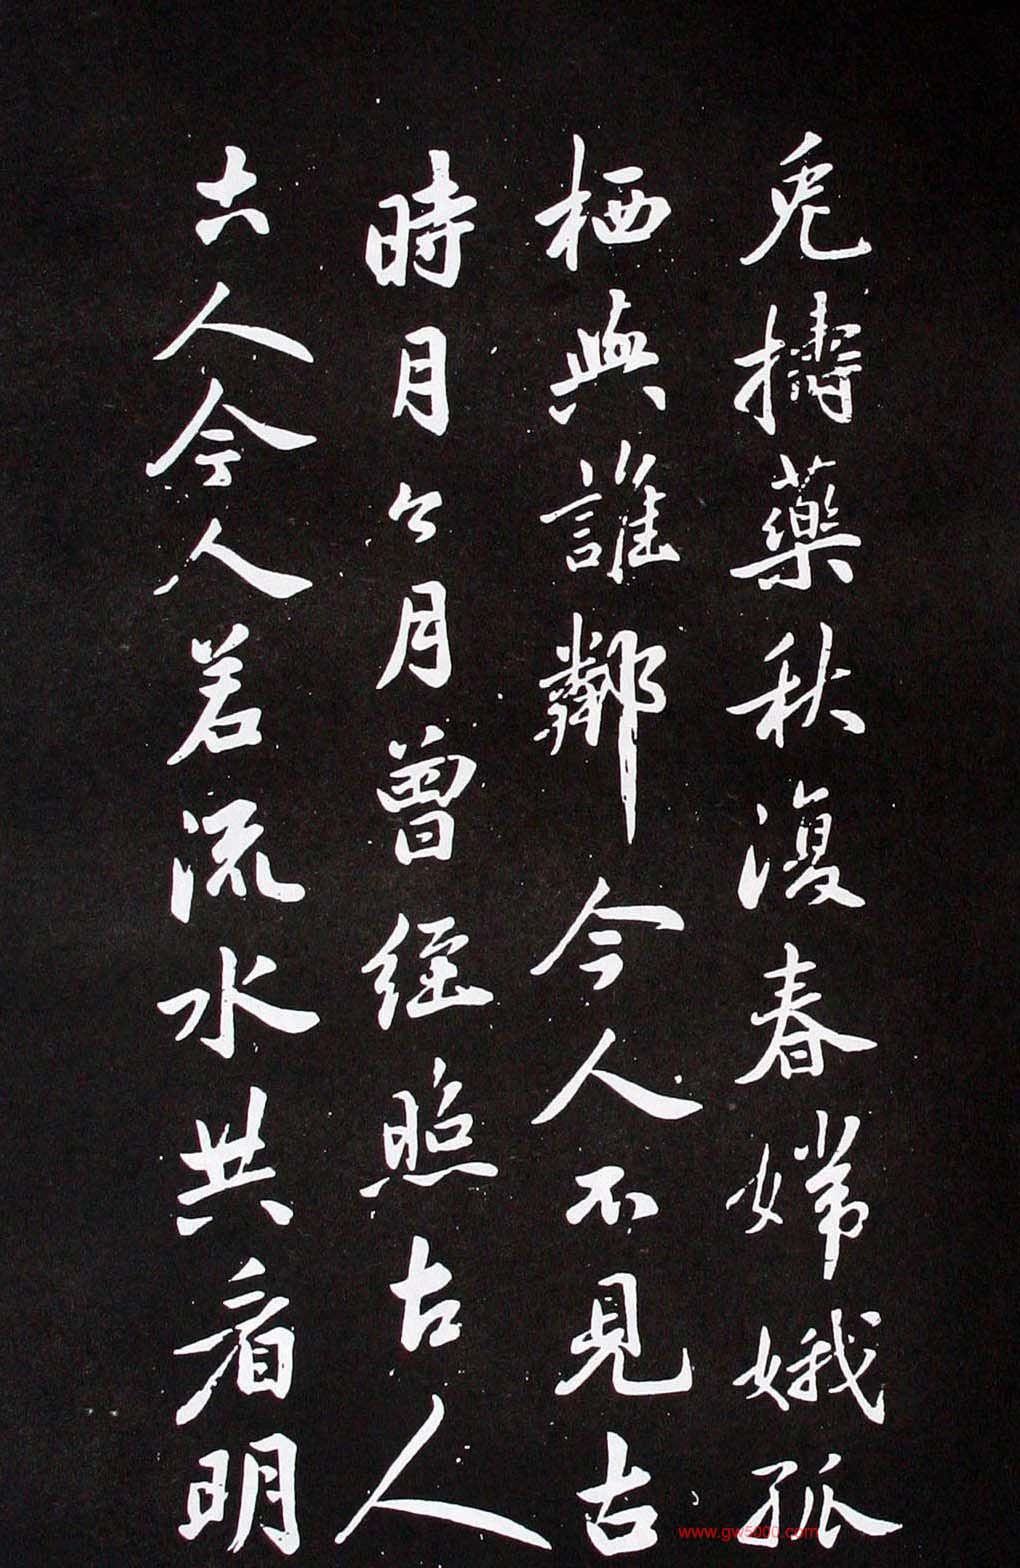 兎擣藥秋復春嫦娥孤
栖與誰鄰今人不見古
時月今月曾經照古人
古人今人若流水共看明